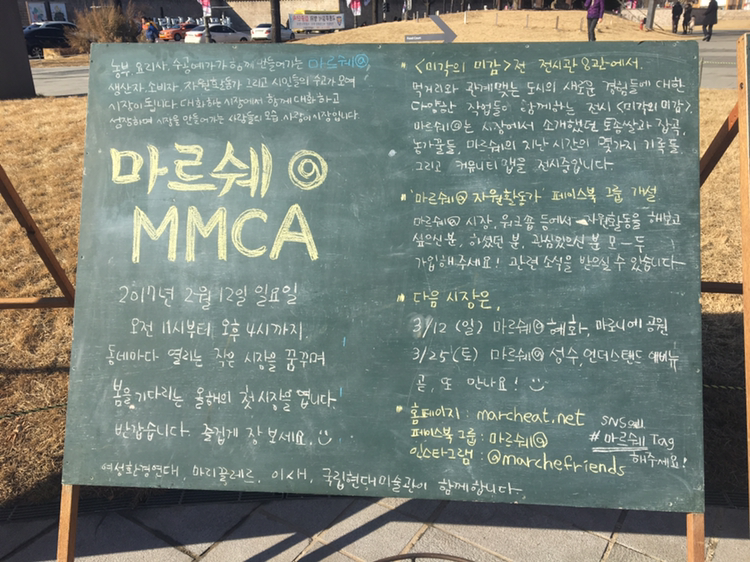 농부, 요리사, 수공예가가 함께 만들어가는 마르쉐@,
생산자, 소비자, 자원활동가 그리고 시민들의 수고가 모여
시장이 됩니다. 대화하는 시장에서 함께 대화하고
성장하며 시장을 만들어가는 사람들의 모습. 사랑이 시장입니다
마르쉐@
MMCA
2017년 2월 12일 일요일
오전 11시부터 오후 4시까지.
동네마다 열리는 작은 시장을 꿈꾸며
봄을 기다리는 올해의 첫 시장을 엽니다.
반갑습니다. 즐겁게 장 보세요.
여성환경연대, 마리끌레르, 이새, 국립현대미술관이 함께합니다.
<미각의 미감>전 전시관 8관에서.
먹거리와 관계맺는 도시의 새로운 경험들에 대한
다양한 작업들이 함께하는 전시 <미각의 미감>.
마르쉐@는 시장에서 소개했던 토종쌀과 잡곡,
농가꿀들, 마르쉐의 지난 시간의 몇가지 기록들,
그리고 커뮤니티 맵을 전시중입니다.
마르쉐@ 자원활동가 페이스북 그룹 개설
마르쉐@ 시장, 워크숍 등에서 자원활동을 해보고
싶으신 분, 하셨던 분, 관심있으신 분 모-두
가입해주세요! 관련 소식을 받으실 수 있습니다.
다음 시장은,
3/12 (일) 마르쉐@ 혜화, 마로니에 공원
3/25 (토) 마르쉐@ 성수, 언더스탠드 에비뉴
곧, 또 만나요!
홈페이지 : marcheat.net
페이스북 그룹 : 마르쉐@
인스타그램 : @marchefriends
SNS에
#마르쉐 Tag
해주세요!